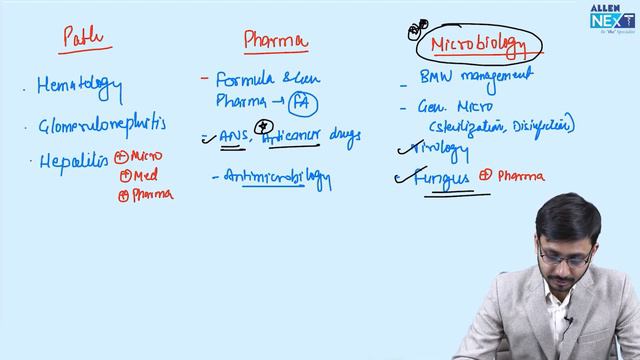 ALLEN
NEXT
Path
Hematology
Glomerulonephritis
Hepatitis + Micro
+ Med
+ Pharma
Pharma
Formula & Gen
Pharma → FA
ANS, Anticancer drugs
Antimicrobiology
Microbiology
BMW management
Gen. Micro
(sterilization, Disinfection)
Virology
Fungus + Pharma